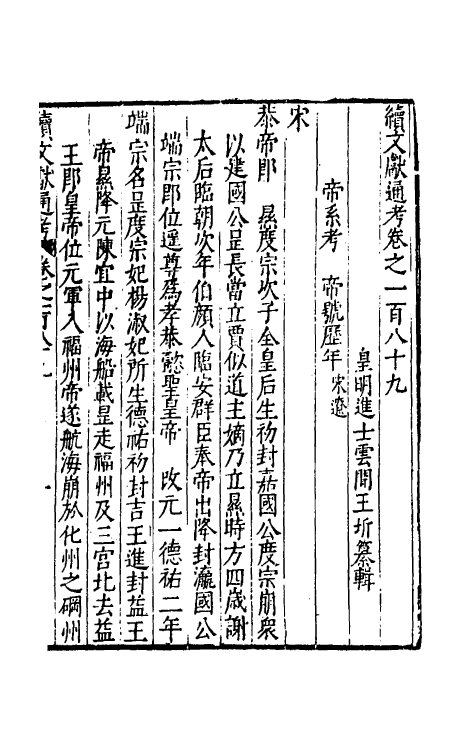 續文獻通考卷之一百八十九
皇明進士雲間王圻纂輯
帝系考　帝號歷年 宋遼
宋
恭帝即　㬎度宗次子全皇后生初封嘉國公度宗崩衆
以建國公昰長當立賈似道主嫡乃立㬎時方四歲謝
太后臨朝次年伯顏入臨安群臣奉帝出降封瀛國公
端宗即位遥尊爲孝恭懿聖皇帝　改元一德祐二年
端宗名昰度宗妃楊淑妃所生德祐初封吉王進封益王
帝㬎降元陳宜中以海船載昰走福州及三宫北去益
王即皇帝位元軍入福州帝遂航海崩於化州之碙州
續文獻通考　卷之一百八十九　一